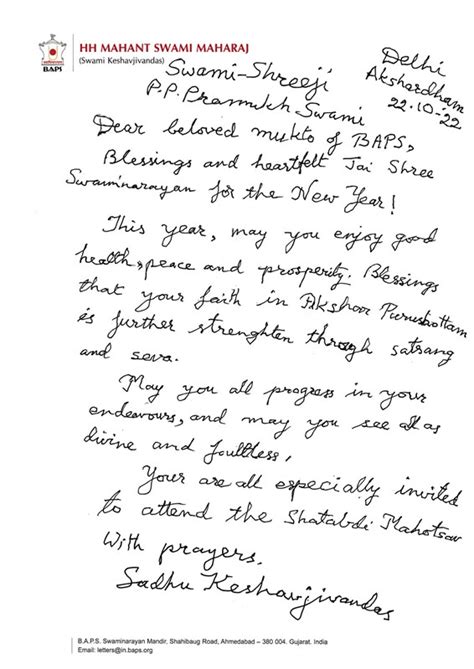 HH MAHANT SWAMI MAHARAJ
(Swami Keshavjivandas)
BAPS
Delhi
Akshardham
22.10-'22
Swami-Shreeji
P.P. Pramukh Swami
Dear beloved mukto of BAPS,
Blessings and heartfelt Jai Shree
Swaminarayan for the New Year!
This year, may you enjoy good
health, peace and prosperity. Blessings
that your faith in Akshar Purushottam
is further strenghten through satsang
and seva.
May you all progress in your
endeavours, and may you see all as
divine and faultless.
Your are all especially invited
to attend the Shatabdi Mahotsav
With prayers.
Sadhu Keshavjivandas
B.A.P.S. Swaminarayan Mandir, Shahibaug Road, Ahmedabad – 380 004. Gujarat. India
Email: letters@in.baps.org